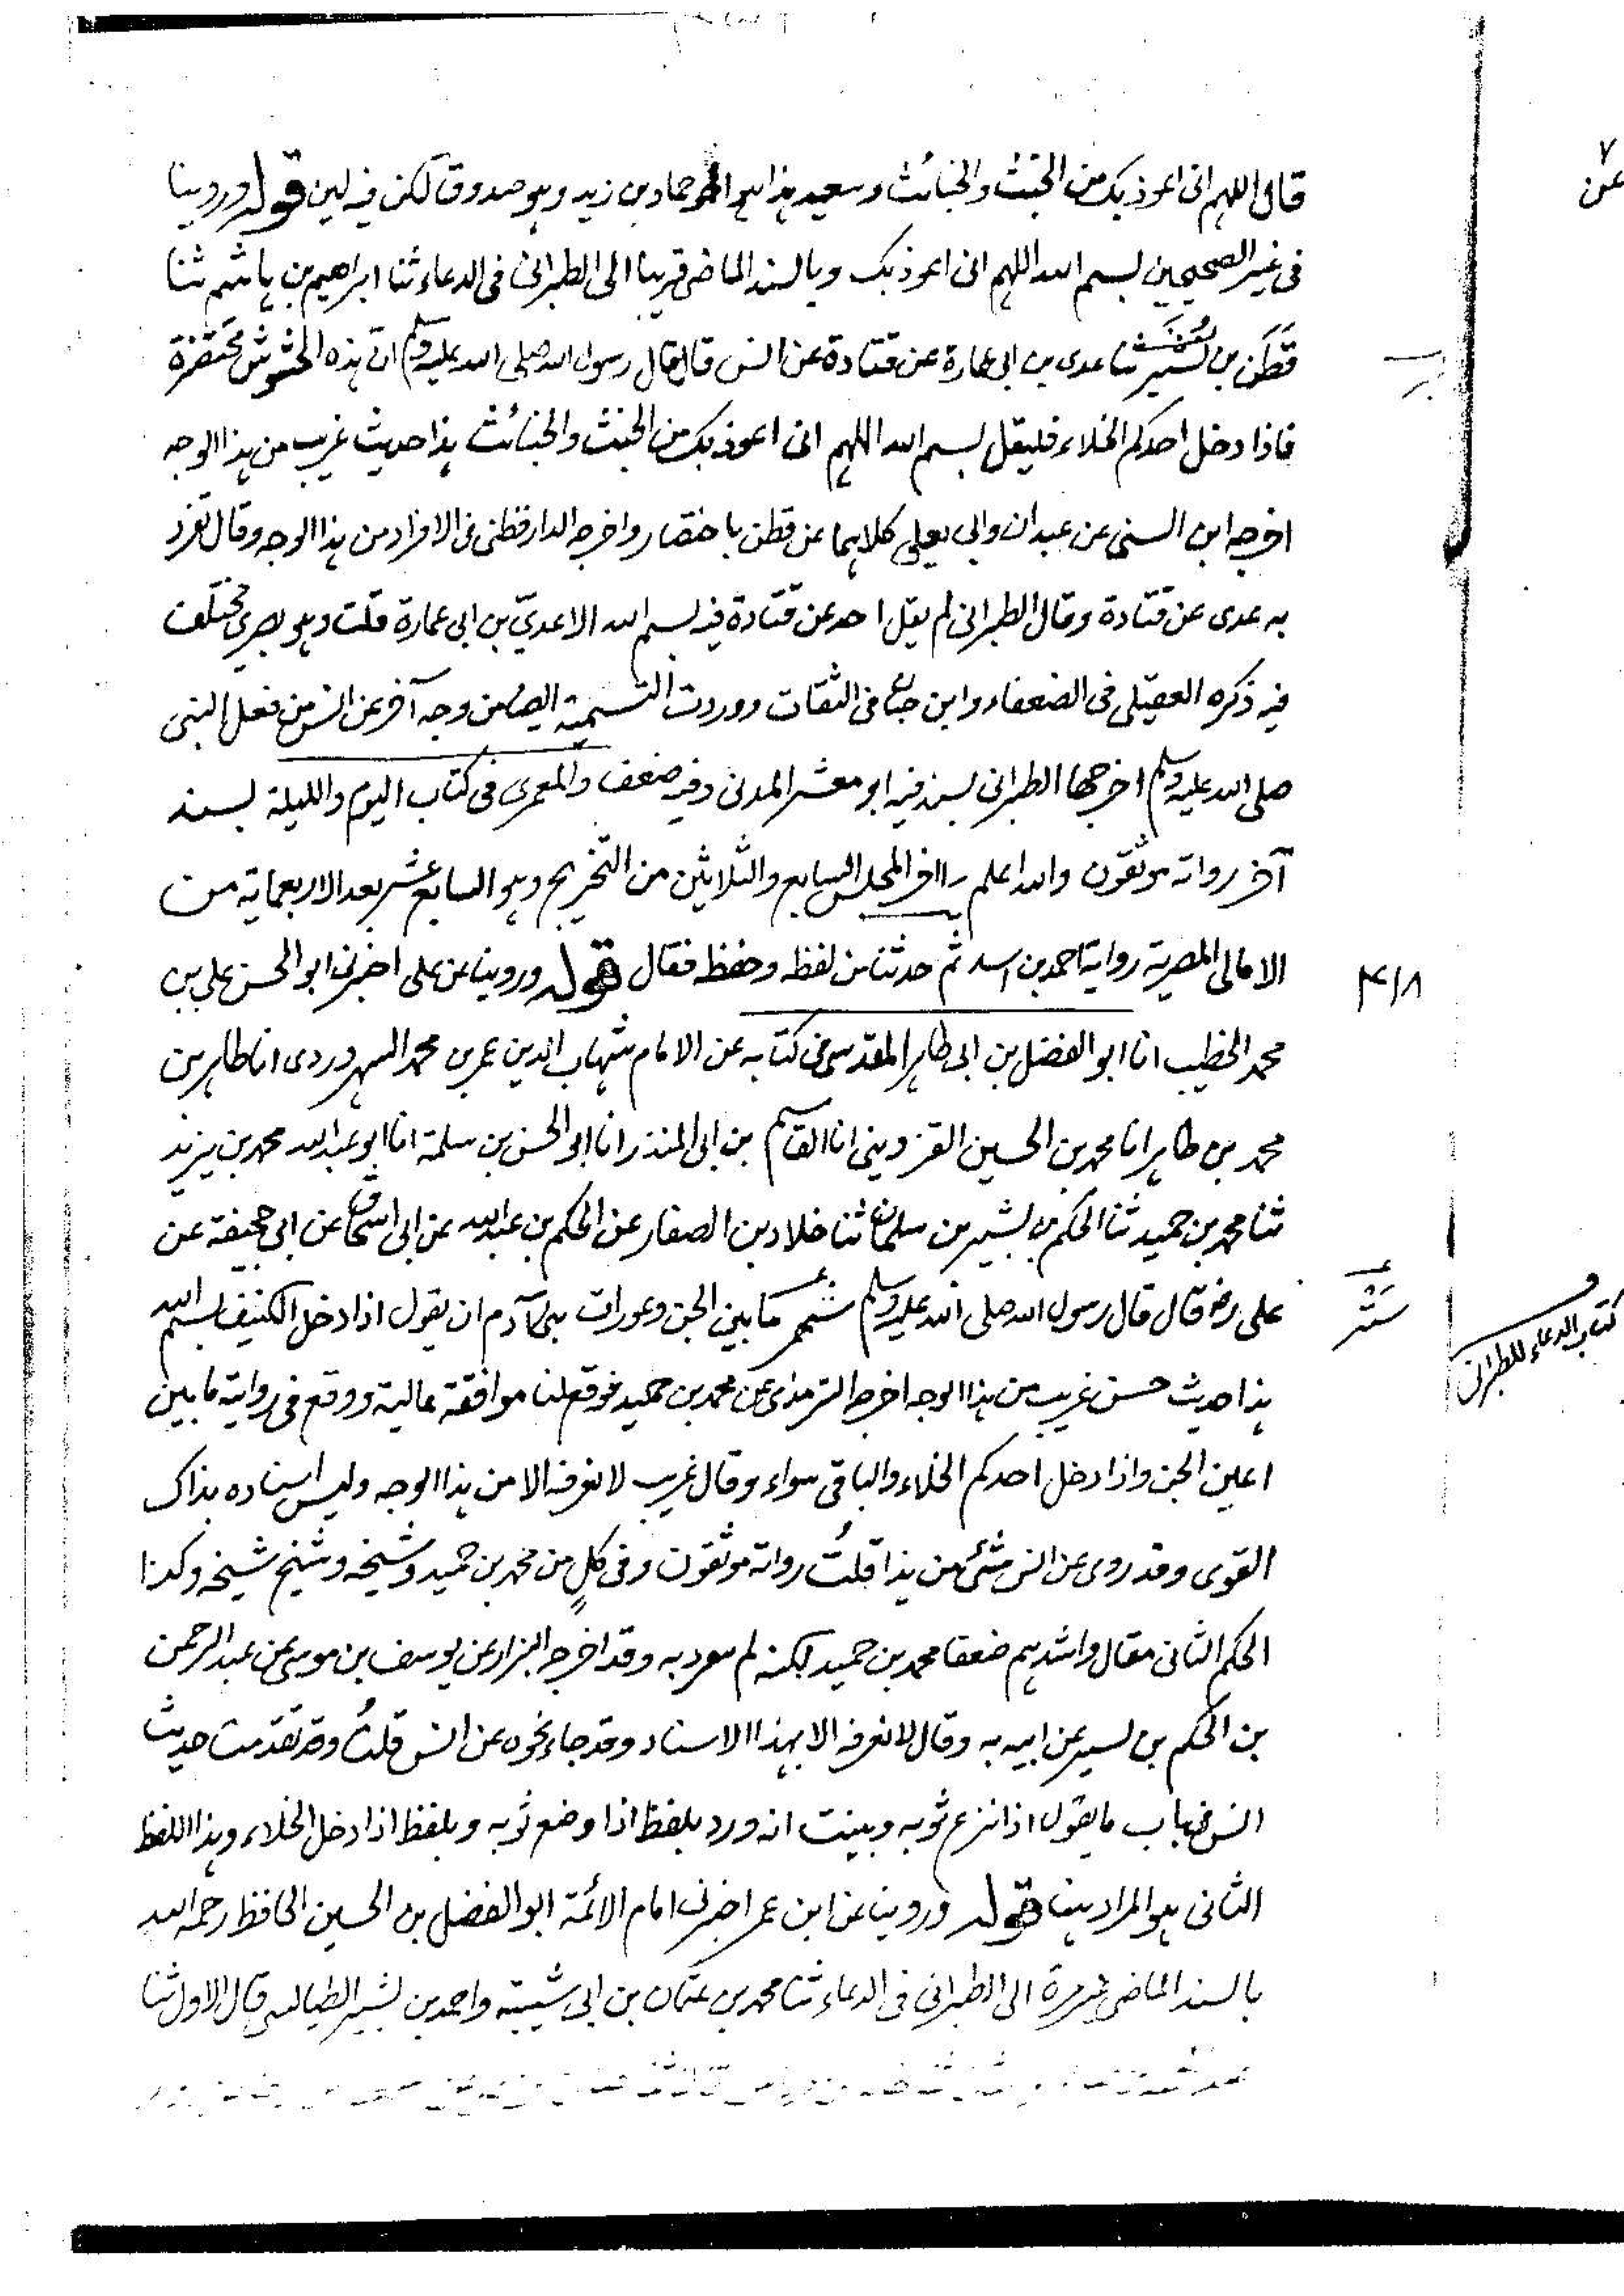 قال اللهم انى اعوذ بك من الخبث والخبائث وسعيد هذا هو اخو حماد بن زيد وهو صدوق لكن فيه لين قوله وروينا
فى غير الصحيحين بسم الله اللهم انى اعوذ بك وبالسند الماضى قريبا الى الطبرانى فى الدعاء ثنا ابراهيم بن هاشم ثنا
قَطَن بن نُسَير ثنا عدى بن ابى عمارة عن قتادة عن انس قال قال رسول الله صلى الله عليه وسلم ان هذه الحشوش محتضرة
فاذا دخل احدكم الخلاء فليقل بسم الله اللهم انى اعوذ بك من الخبث والخبائث هذا حديث غريب من هذا الوجه
اخرجه ابن السنى عن عبدان وابى يعلى كلاهما عن قطن باختصار واخرجه الدارقطنى فى الافراد من هذا الوجه وقال تفرد
به عدى عن قتادة وقال الطبرانى لم يقل احد عن قتادة فيه بسم الله الا عدىّ بن ابى عمارة قلت وهو بصرى مختلف
فيه ذكره العقيلى فى الضعفاء وابن حبان فى الثقات ووردت التسمية ايضا من وجه آخر عن انس من فعل النبى
صلى الله عليه وسلم اخرجها الطبرانى بسند فيه ابو معشر المدنى وفيه ضعف والمعمرى فى كتاب اليوم والليلة بسند
آخر رواته موثقون والله اعلم آخر المجلس السابع والثلاثين من التخريج وهو السابع عشر بعد الاربعماية من
الامالى المصرية رواية احمد بن اسد ثم حدثنا من لفظه وحفظه فقال قوله وروينا عن على اخبرنى ابو الحسن على بن
محمد الخطيب انا ابو الفضل بن ابى طاهر المقدسى فى كتابه عن الامام شهاب الدين عمر بن محمد السهروردى انا طاهر بن
محمد بن طاهر انا محمد بن الحسين القزوينى انا القاسم بن ابى المنذر انا ابو الحسن بن سلمة انا ابو عبد الله محمد بن يزيد
ثنا محمد بن حميد ثنا الحكم بن بشير بن سلمان ثنا خلاد بن الصفار عن الحكم بن عبد الله عن ابى اسحاق عن ابى جحيفة عن
على رضه قال قال رسول الله صلى الله عليه وسلم ستر ما بين الجن وعورات بنى آدم ان يقول اذا دخل الكنيف بسم الله
هذا حديث حسن غريب من هذا الوجه اخرجه الترمذى عن محمد بن حميد فوقع لنا موافقة عالية ووقع فى رواية ما بين
اعين الجن واذا دخل احدكم الخلاء والباقى سواء وقال غريب لا نعرفه الا من هذا الوجه وليس اسناده بذاك
القوى وقد روى عن انس شئ من هذا قلتُ رواته موثقون وفى كلٍ من محمد بن حميد وشيخه وشيخ شيخه وكذا
الحكم الثانى مقال واشدهم ضعفا محمد بن حميد لكنه لم ينفرد به وقد اخرجه البزار عن يوسف بن موسى عن عبد الرحمن
بن الحكم بن بشير عن ابيه به وقال لا نعرفه الا بهذا الاسناد وقد جاء نحوه عن انس قلتُ وقد تقدمت حديث
انس فى باب ما يقول اذا نزع ثوبه وبينت انه ورد بلفظ اذا وضع ثوبه وبلفظ اذا دخل الخلاء وهذا اللفظ
الثانى هو المراد هنا قوله وروينا عن ابن عمر اخبرنى امام الائمة ابو الفضل بن الحسين الحافظ رحمه الله
بالسند الماضى غير مرة الى الطبرانى فى الدعاء ثنا محمد بن عثمان بن ابى شيبة واحمد بن بشير الطيالسى قال الاول ثنا
٧
عن
٤١٨
ستر
كتاب الدعاء للطبرانى